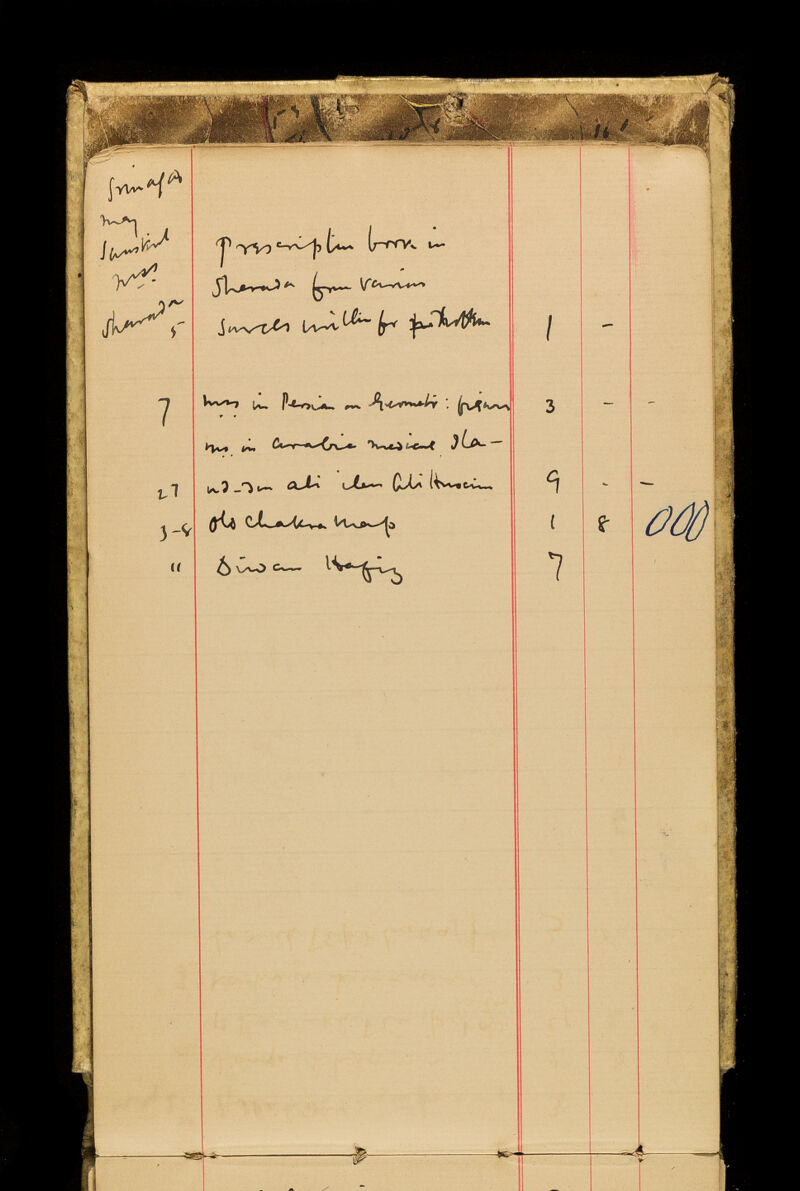 Srinagar
May
Sanskrit
mss
Sharada
5
Prescription book in
Sharada from various
sources written for
1 -
7 mss in Persian on Geometr: figures 3 - -
ms. in Arabic medical Ila-
27 ud-Din Ali ibn Ali Husein 9 - -
3-8 Old Chakra Map 1 8 000
" Diwan Hafiz 7